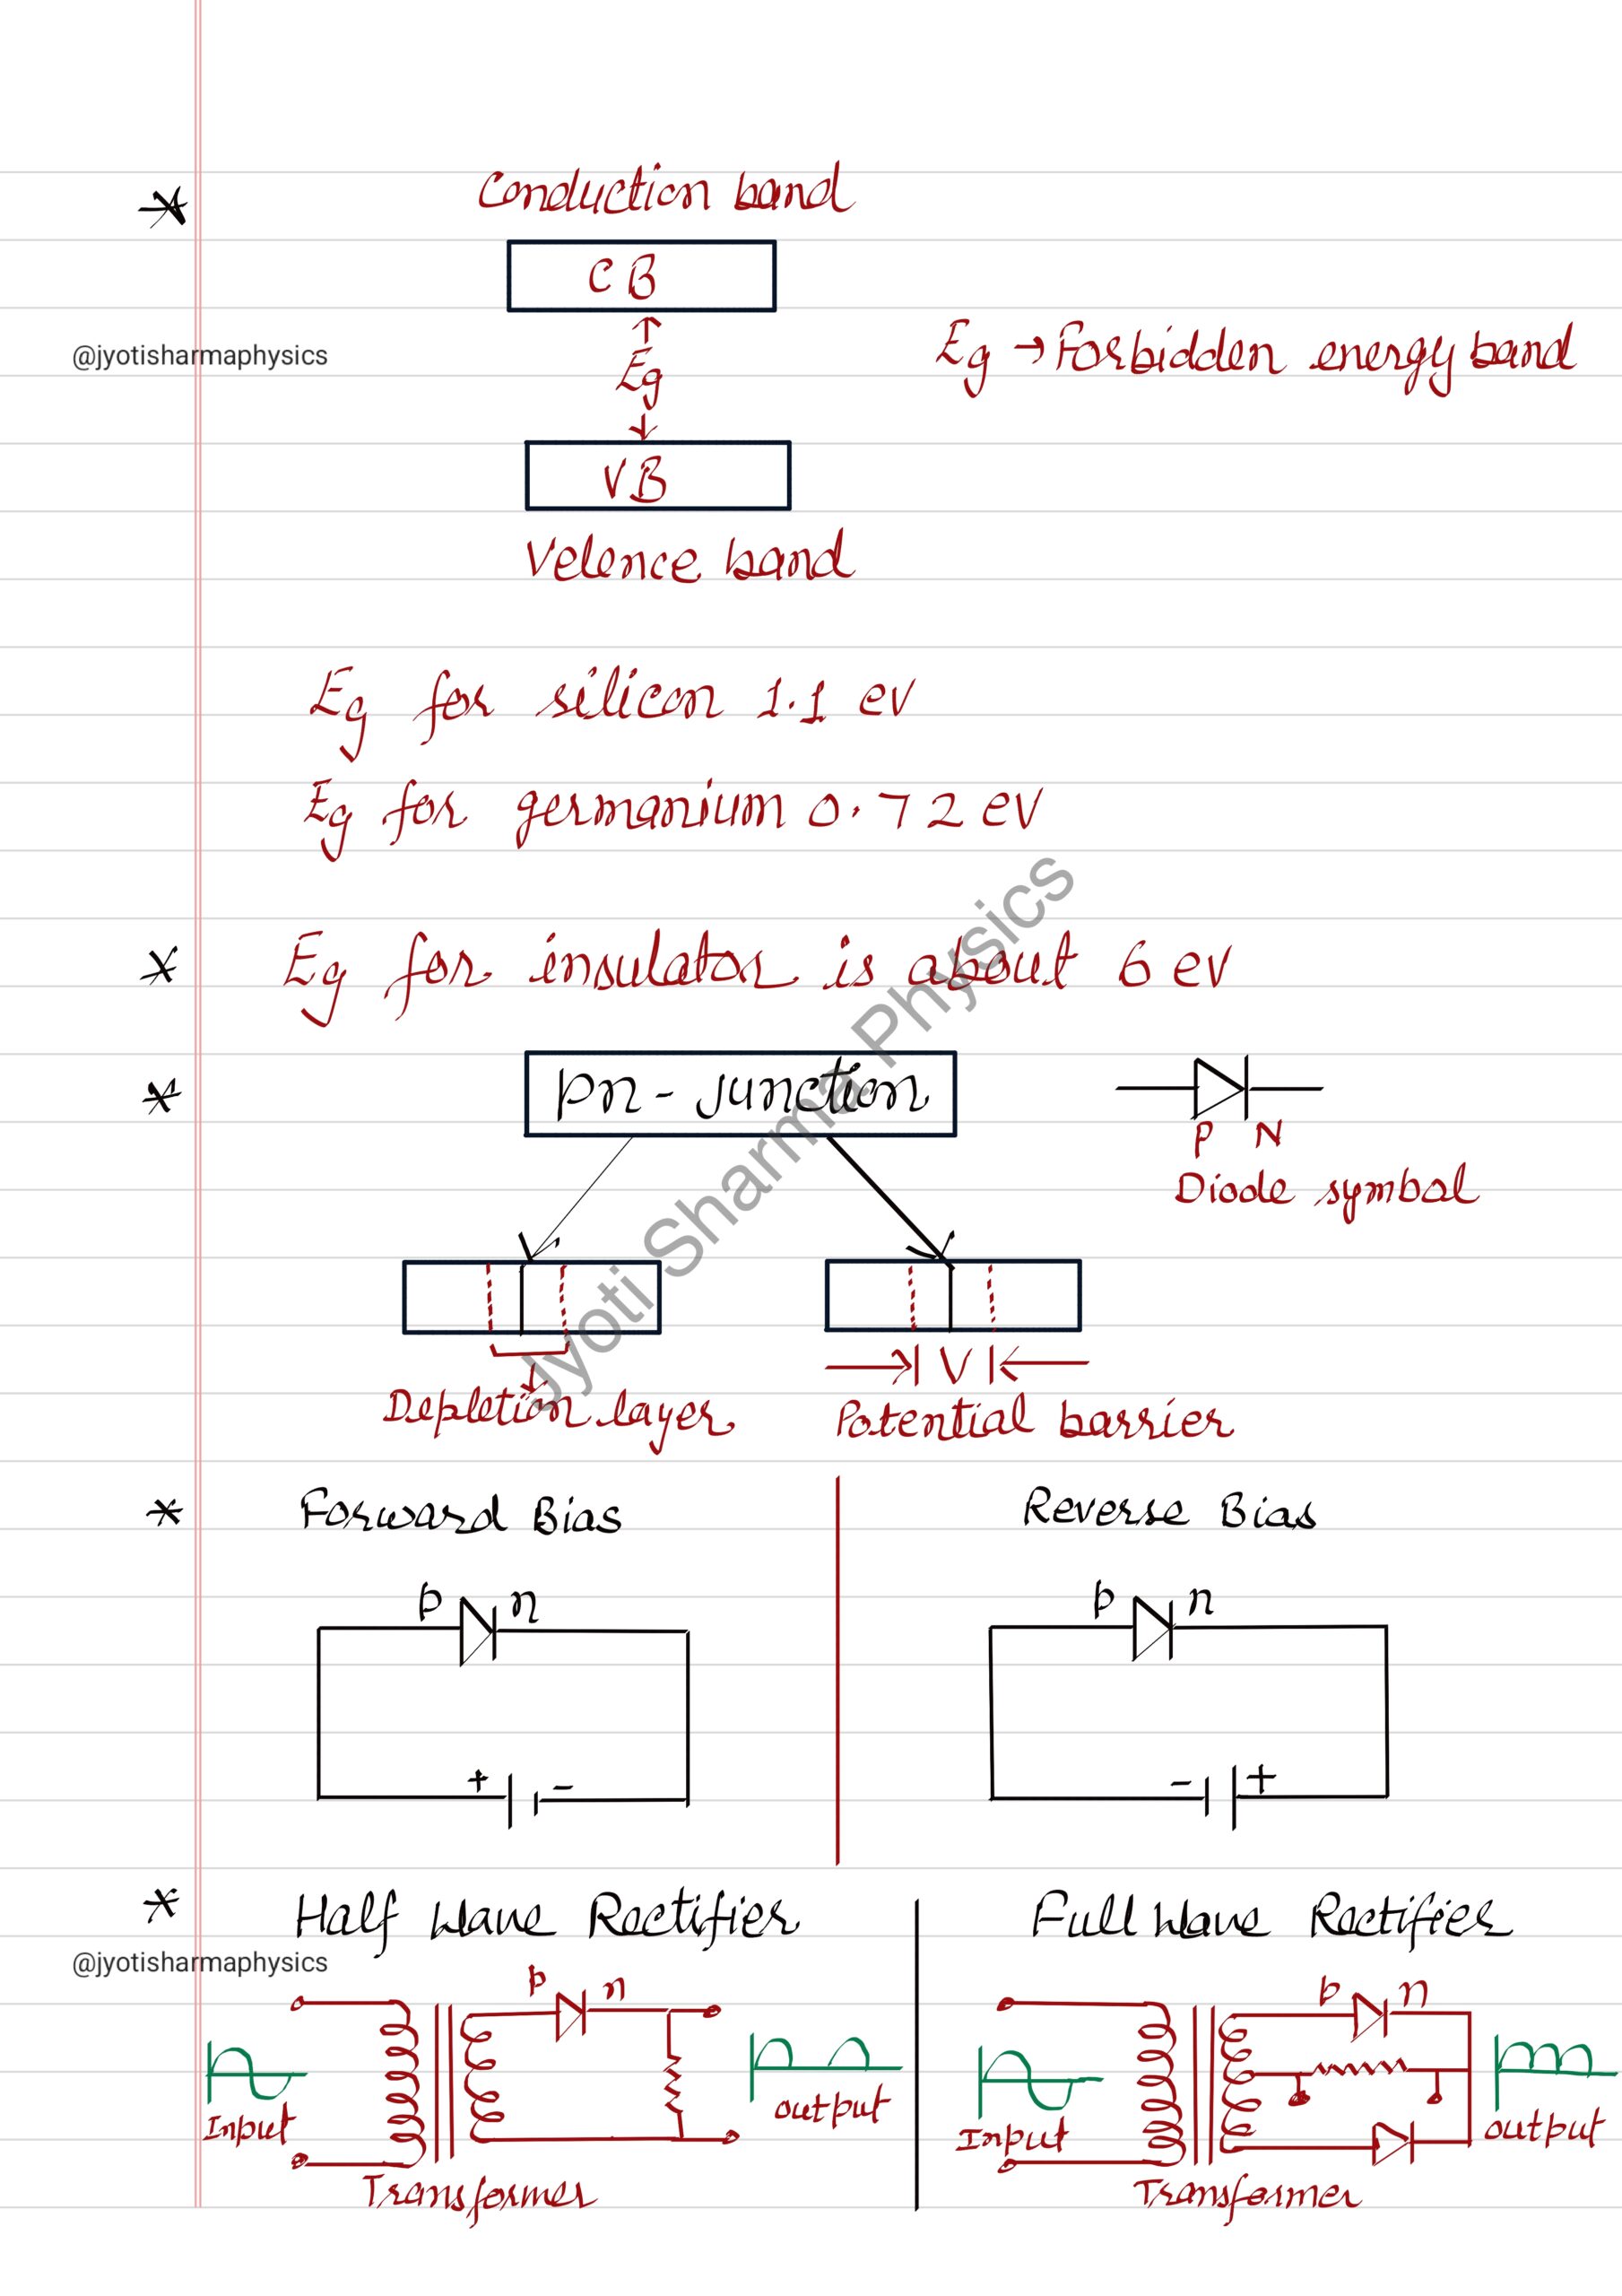 Conduction band
CB
@jyotisharmaphysics
Eg
Eg → Forbidden energy band
VB
Velence band
Eg for silicon 1.1 ev
Eg for germanium 0.72 ev
Eg for insulator is about 6 ev
pn - junction
P N
Diode symbol
Jyoti Sharma Physics
V
Depletion layer
Potential barrier
Forward Bias
Reverse Bias
p n
p n
+ -
- +
Half Wave Rectifier
Full Wave Rectifier
@jyotisharmaphysics
p n
p n
Input
output
Input
output
Transformer
Transformer